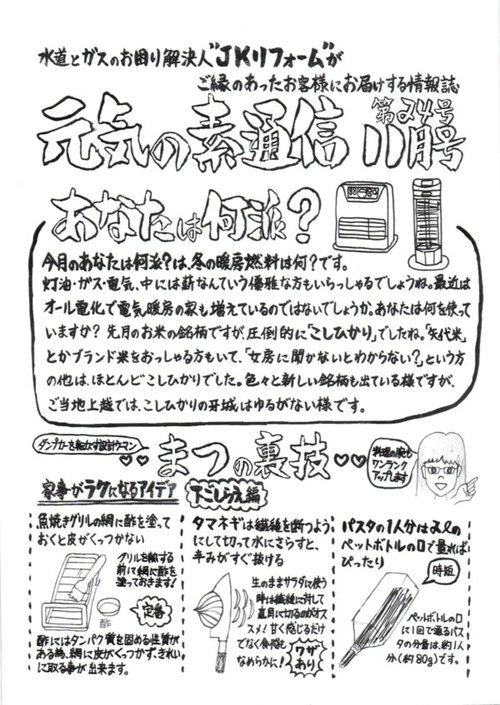 水道とガスのお困り解決人"JKリフォーム"が
ご縁のあったお客様にお届けする情報誌
元気の素通信
第24号
11月号
あなたは何派?
今月のあなたは何派?は、冬の暖房燃料は何?です。
灯油・ガス・電気、中には薪なんていう優雅な方もいらっしゃるでしょうね。最近は
オール電化で電気暖房の家も増えているのではないでしょうか。あなたは何を使って
いますか? 先月のお米の銘柄ですが、圧倒的に「こしひかり」でしたね。「矢代米」
とかブランド米をおっしゃる方もいて、「女房に聞かないとわからない?」という方
の他は、ほとんどこしひかりでした。色々と新しい銘柄も出ている様ですが、
ご当地上越では、こしひかりの牙城はゆるがない様です。
ダンプカーを転がす設計ウーマン
まつの裏技
料理の腕も
ワンランク
アップします
家事がラクになるアイデア
下ごしらえ編
魚焼きグリルの網に酢を塗って
おくと皮がくっつかない
グリルを熱する
前に網に酢を
塗っておきます!
酢
定番
酢にはタンパク質を固める性質が
ある為、網に皮がくっつかず、きれい
に取る事が出来ます。
タマネギは繊維を断つよう
にして切って水にさらすと、
辛みがすぐ抜ける
生のままサラダに使う
時は繊維に対して
直角に切るのがオス
スメ!甘く感じるだけ
でなく食感も
なめらかに!
ワザ
あり
パスタの1人分は2Lの
ペットボトルの口で量れば
ぴったり
時短
ペットボトルの口
に1回で通るパス
タの分量は、約1人
分(約80g)です。